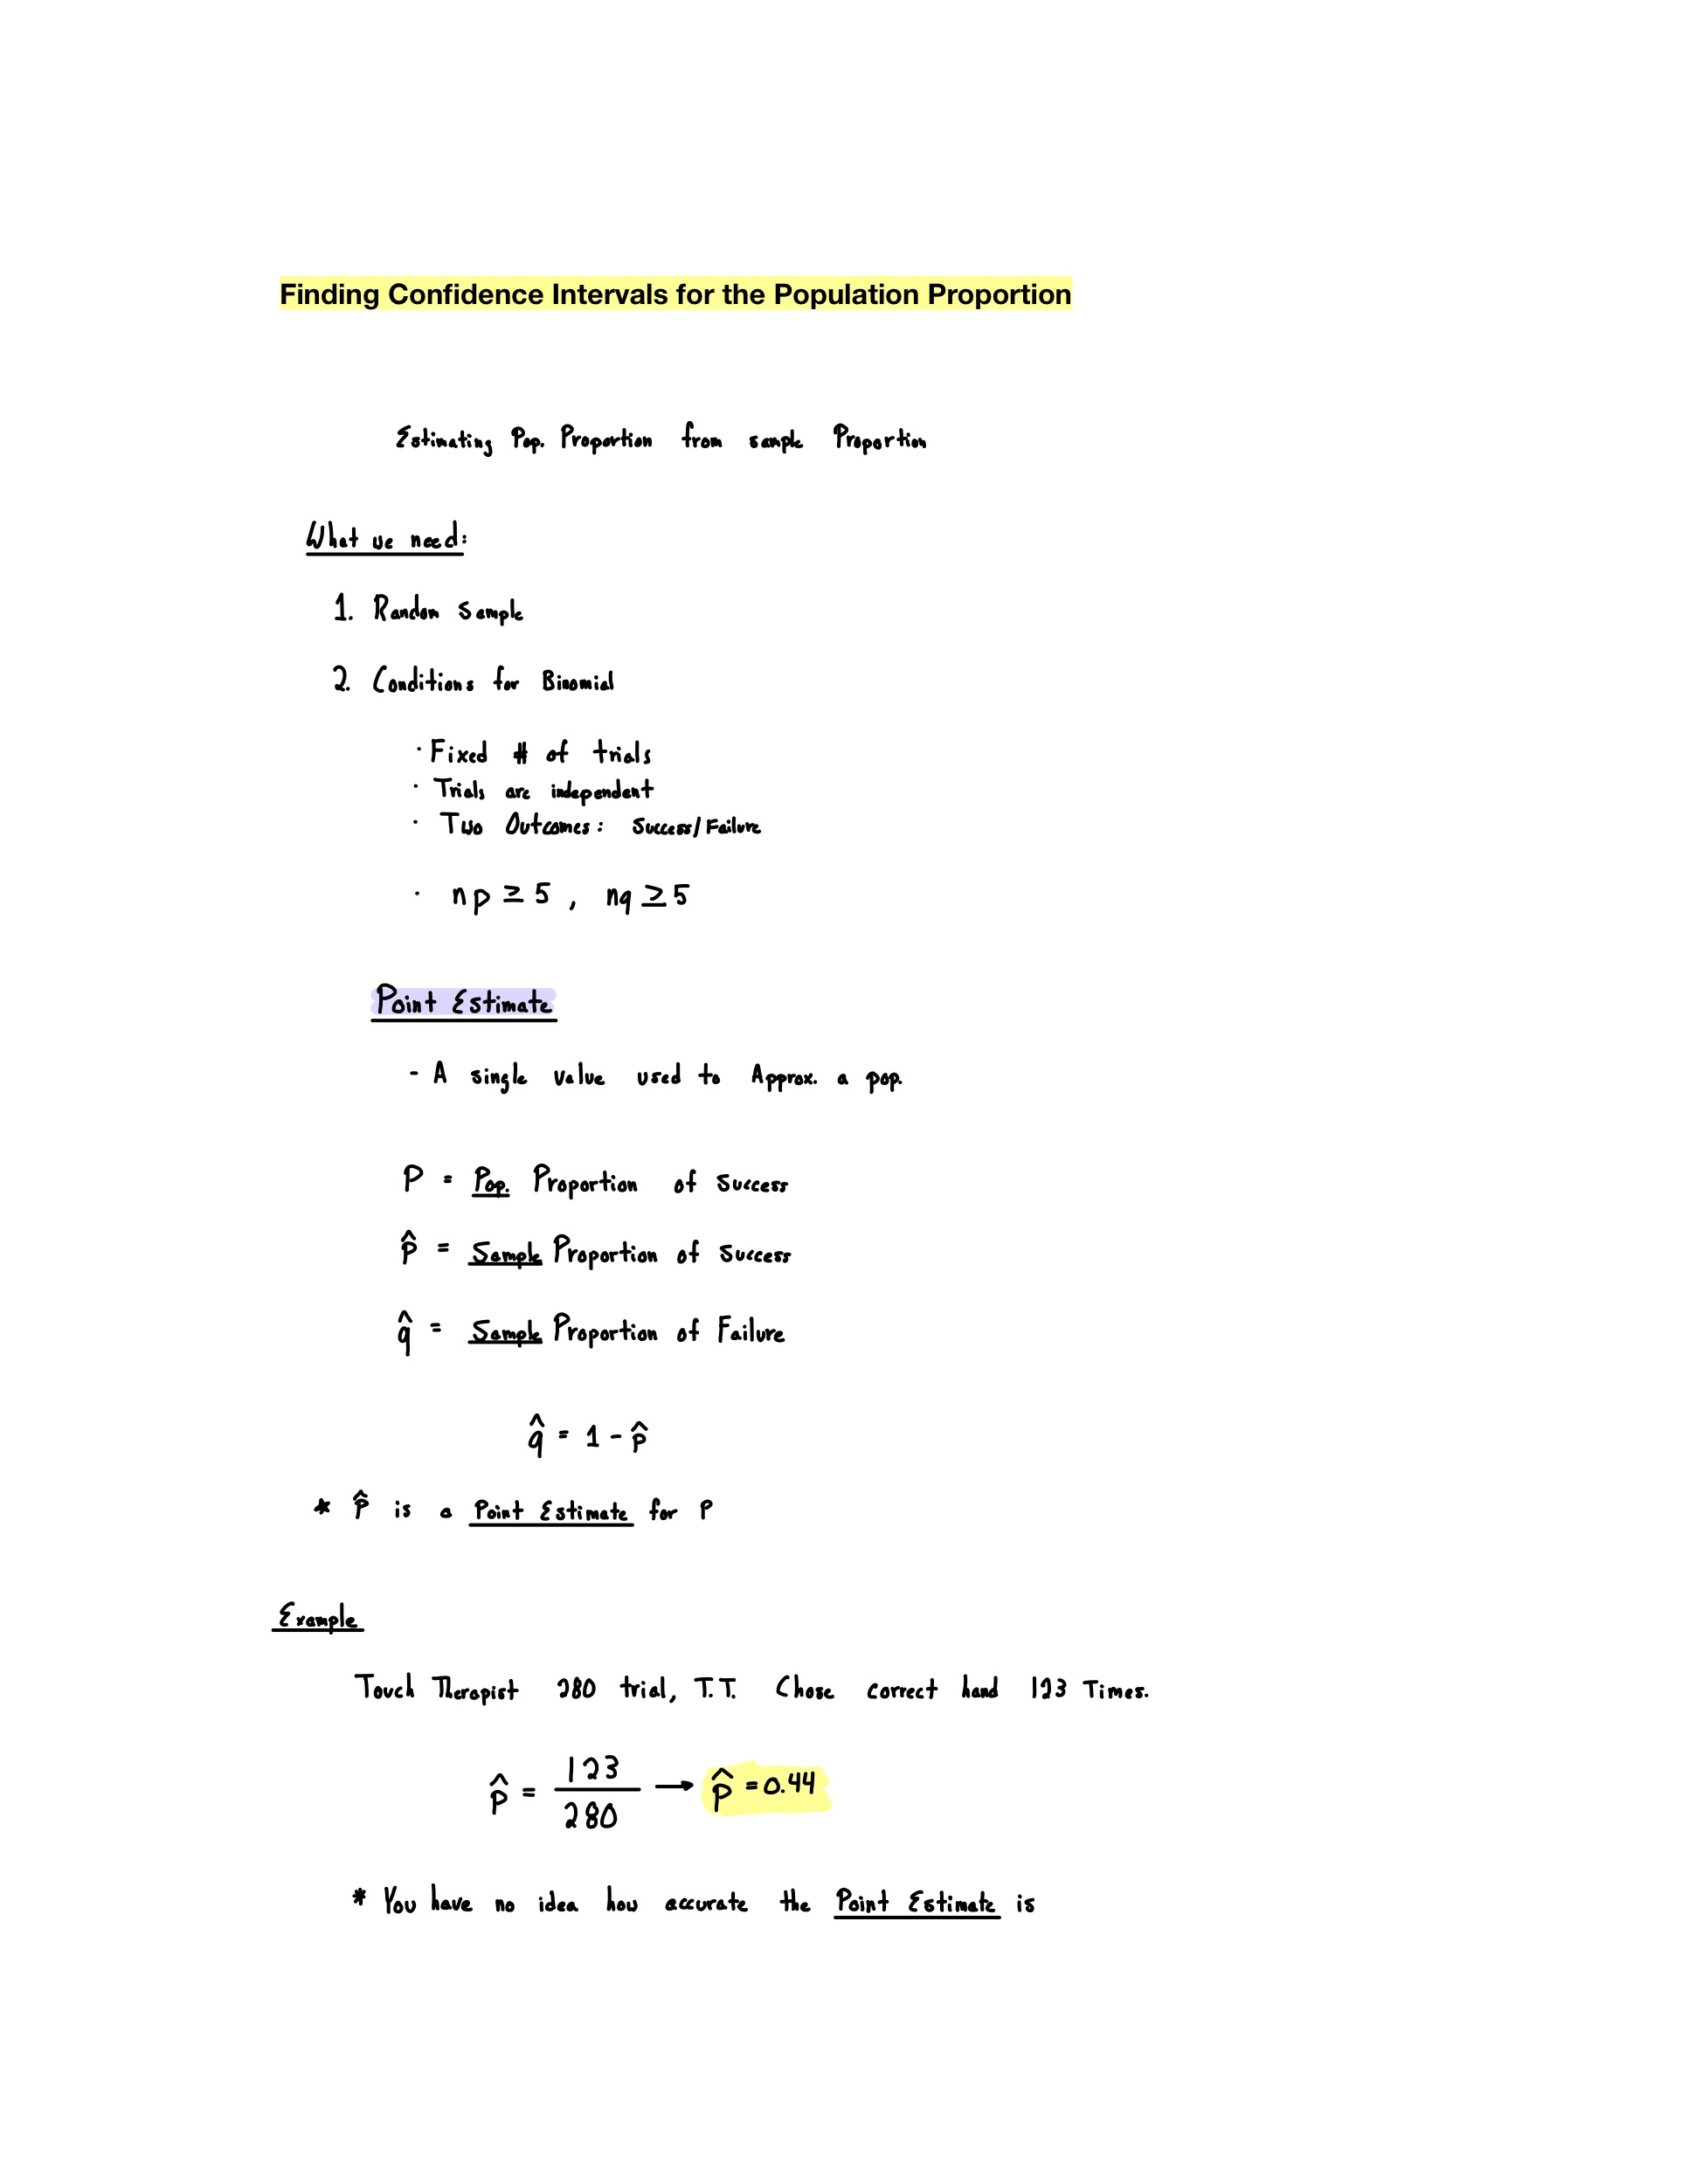 Finding Confidence Intervals for the Population Proportion
Estimating Pop. Proportion from sample Proportion
What we need:
1. Random Sample
2. Conditions for Binomial
· Fixed # of trials
· Trials are independent
· Two Outcomes: Success/Failure
· np ≥ 5, nq ≥ 5
Point Estimate
- A single value used to Approx. a pop.
P = Pop. Proportion of Success
p̂ = Sample Proportion of Success
q̂ = Sample Proportion of Failure
q̂ = 1 - p̂
* p̂ is a Point Estimate for P
Example
Touch Therapist 280 trial, T.T. Chose correct hand 123 Times.
p̂ = 123/280 → p̂ = 0.44
* You have no idea how accurate the Point Estimate is